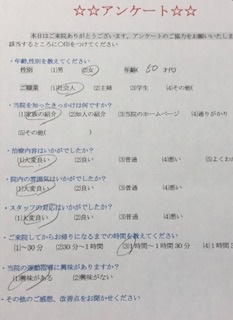 ☆☆アンケート☆☆
本日はご来院ありがとうございます。アンケートのご協力をお願いいたしま
該当するところに〇印をつけてください
・年齢,性別を教えてください
性別 (1)男 (2)女 年齢( 50 才代)
ご職業 (1)社会人 (2)主婦 (3)学生 (4)その他(
・当院を知ったきっかけは何ですか?
(1)家族の紹介 (2)知人の紹介 (3)当院のホームページ (4)通りがかり
(5)その他( )
・治療内容はいかがでしたか?
(1)大変良い (2)良い (3)普通 (4)悪い (5)よくわか
・院内の雰囲気はいかがでしたか?
(1)大変良い (2)良い (3)普通 (4)悪い
・スタッフの対応はいかがでしたか?
(1)大変良い (2)良い (3)普通 (4)悪い
・ご来院してからお帰りになるまでの時間を教えてください
(1)~30分 (2)30分~1時間 (3)1時間~1時間30分 (4)1時間3
・当院の運動指導に興味がありますか?
(1)興味がある (2)興味がない
・その他のご感想、改善点をお聞かせください